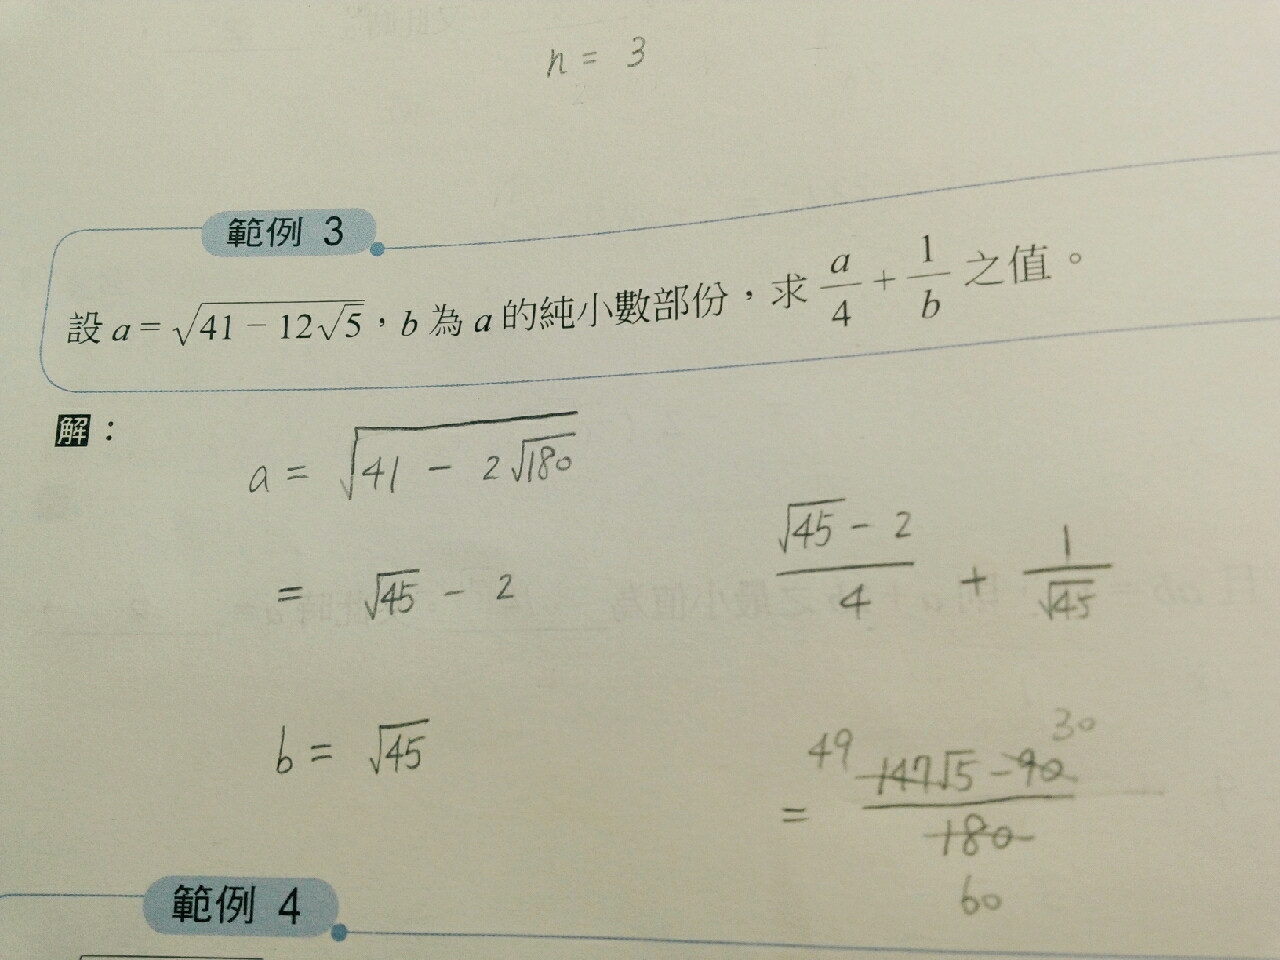 n = 3
範例 3
設 a = √(41 − 12√5)，b 為 a 的純小數部份，求 a/4 + 1/b 之值。
解：
a = √(41 − 2√180)
= √45 − 2
b = √45
(√45 − 2)/4 + 1/√45
= (147√5 − 90)/180
49 30
60
範例 4